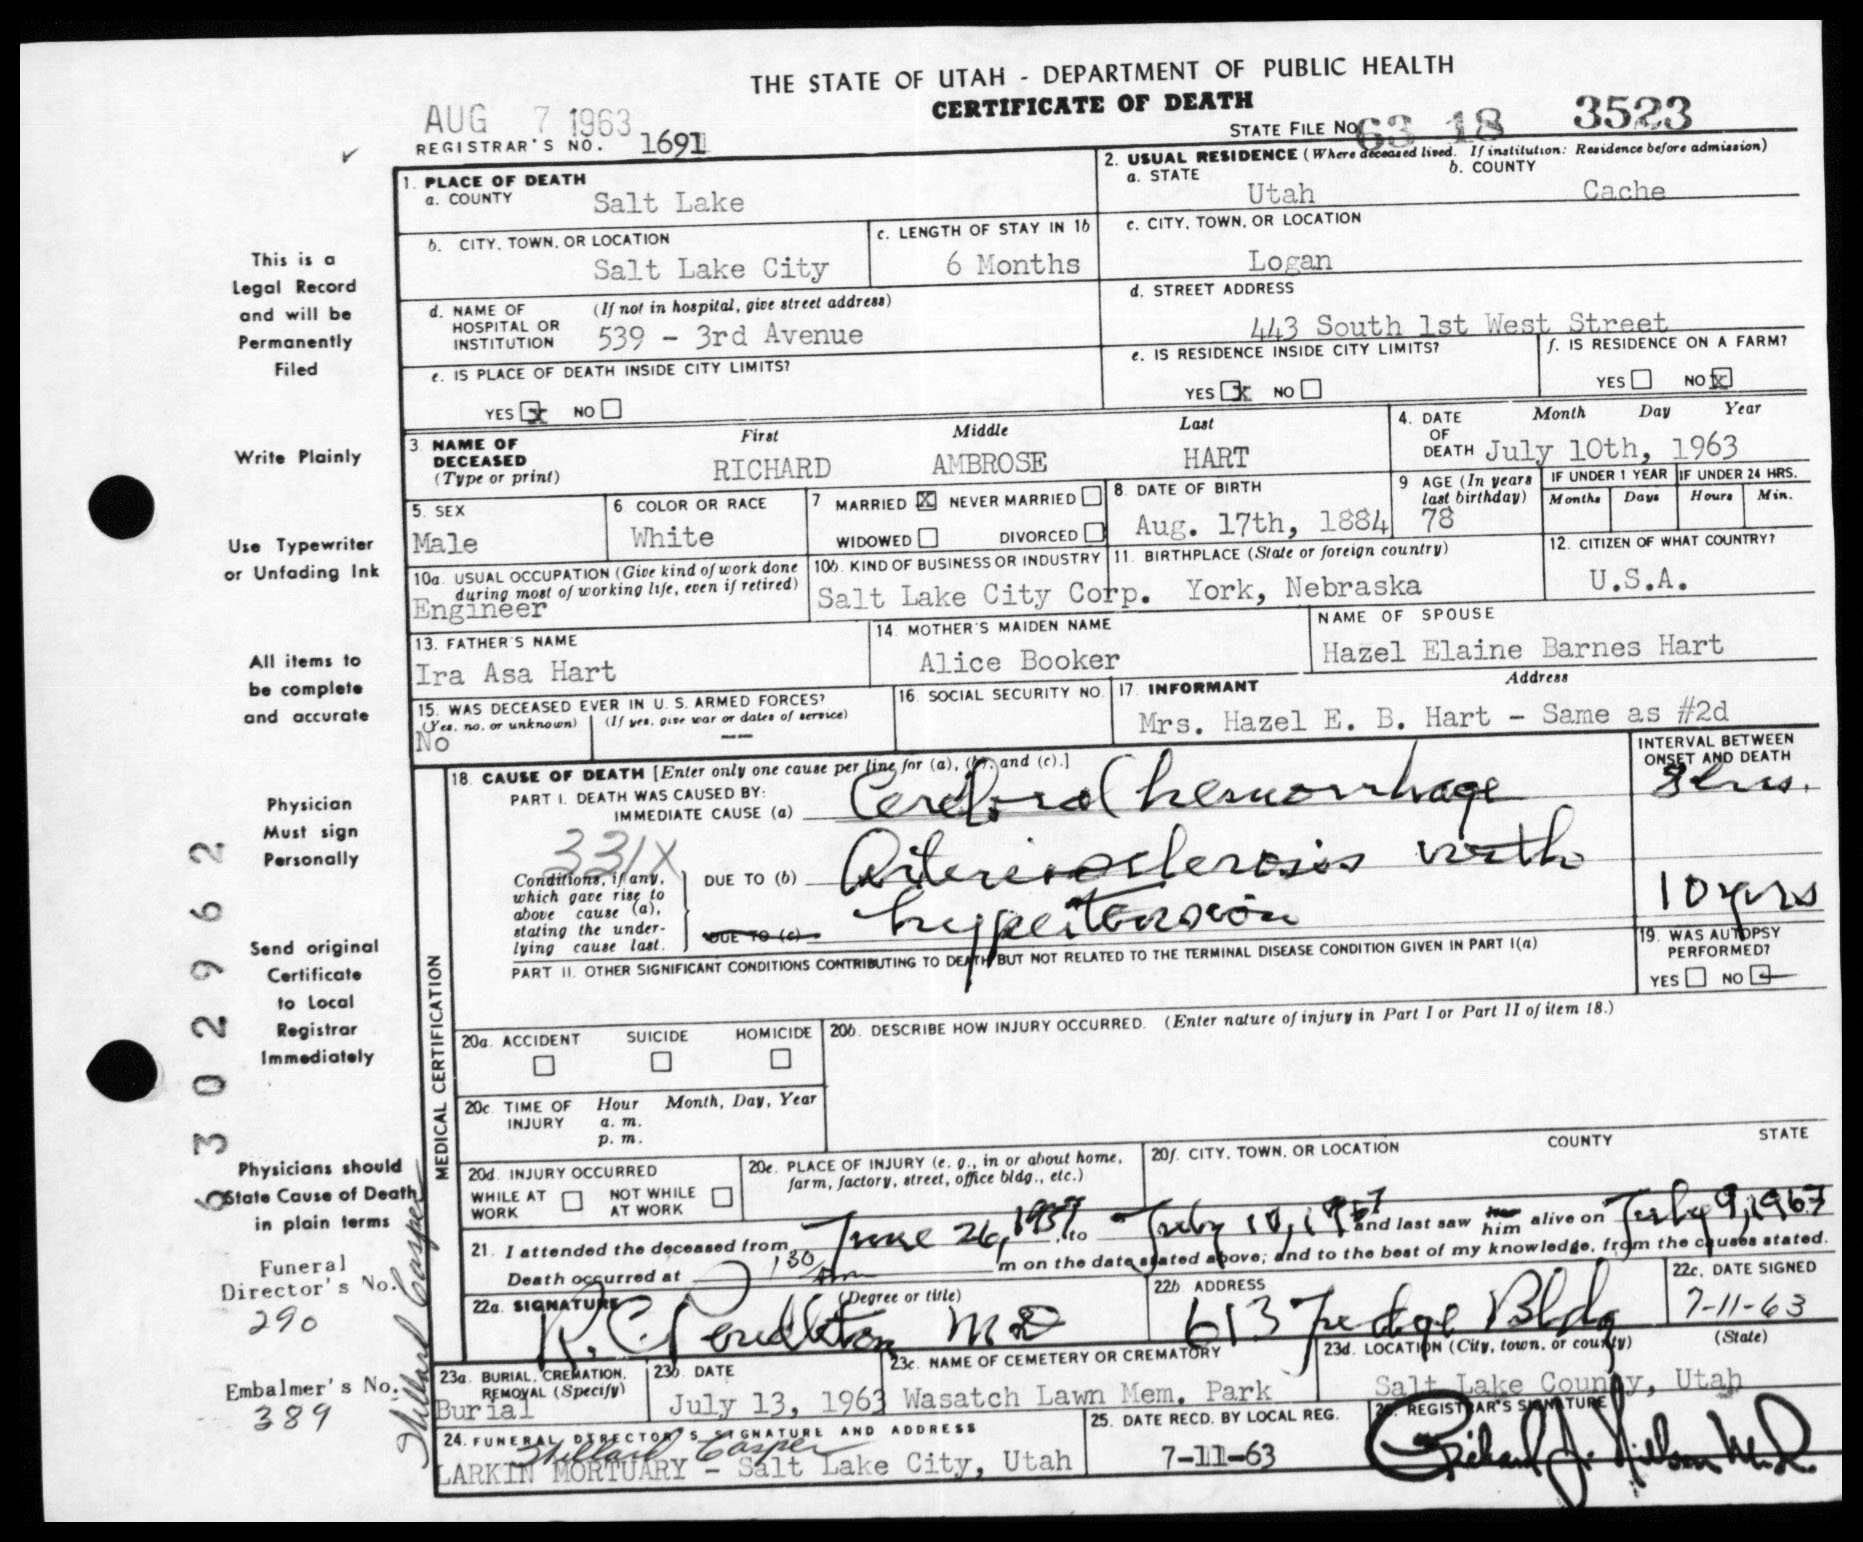 THE STATE OF UTAH - DEPARTMENT OF PUBLIC HEALTH
CERTIFICATE OF DEATH
AUG 7 1963
REGISTRAR'S NO. 1691
STATE FILE NO. 63 18 3523
1. PLACE OF DEATH
a. COUNTY Salt Lake
2. USUAL RESIDENCE (Where deceased lived. If institution: Residence before admission)
a. STATE Utah b. COUNTY Cache
b. CITY, TOWN, OR LOCATION Salt Lake City
c. LENGTH OF STAY IN 1b 6 Months
c. CITY, TOWN, OR LOCATION Logan
d. NAME OF HOSPITAL OR INSTITUTION (If not in hospital, give street address) 539 - 3rd Avenue
d. STREET ADDRESS 443 South 1st West Street
e. IS PLACE OF DEATH INSIDE CITY LIMITS? YES x NO
e. IS RESIDENCE INSIDE CITY LIMITS? YES x NO
f. IS RESIDENCE ON A FARM? YES NO x
3. NAME OF DECEASED (Type or print) First Middle Last
RICHARD AMBROSE HART
4. DATE OF DEATH Month Day Year
July 10th, 1963
5. SEX Male
6 COLOR OR RACE White
7 MARRIED X NEVER MARRIED
WIDOWED DIVORCED
8. DATE OF BIRTH Aug. 17th, 1884
9 AGE (In years last birthday) 78
IF UNDER 1 YEAR Months Days
IF UNDER 24 HRS. Hours Min.
10a. USUAL OCCUPATION (Give kind of work done during most of working life, even if retired) Engineer
10b. KIND OF BUSINESS OR INDUSTRY Salt Lake City Corp.
11. BIRTHPLACE (State or foreign country) York, Nebraska
12. CITIZEN OF WHAT COUNTRY? U.S.A.
13. FATHER'S NAME Ira Asa Hart
14. MOTHER'S MAIDEN NAME Alice Booker
NAME OF SPOUSE Hazel Elaine Barnes Hart
15. WAS DECEASED EVER IN U. S. ARMED FORCES?
(Yes, no, or unknown) (If yes, give war or dates of service)
No --
16. SOCIAL SECURITY NO.
17. INFORMANT Address
Mrs. Hazel E. B. Hart - Same as #2d
18. CAUSE OF DEATH [Enter only one cause per line for (a), (b), and (c).]
INTERVAL BETWEEN ONSET AND DEATH
PART I. DEATH WAS CAUSED BY:
IMMEDIATE CAUSE (a) Cerebral hemorrhage 3 hrs.
331X
Conditions, if any, which gave rise to above cause (a), stating the underlying cause last.
DUE TO (b) Arteriosclerosis with
DUE TO (c) hypertension 10 yrs
PART II. OTHER SIGNIFICANT CONDITIONS CONTRIBUTING TO DEATH BUT NOT RELATED TO THE TERMINAL DISEASE CONDITION GIVEN IN PART I(a)
19. WAS AUTOPSY PERFORMED?
YES NO
MEDICAL CERTIFICATION
20a. ACCIDENT SUICIDE HOMICIDE
20b. DESCRIBE HOW INJURY OCCURRED. (Enter nature of injury in Part I or Part II of item 18.)
20c. TIME OF INJURY Hour Month, Day, Year
a. m.
p. m.
20d. INJURY OCCURRED
WHILE AT WORK NOT WHILE AT WORK
20e. PLACE OF INJURY (e. g., in or about home, farm, factory, street, office bldg., etc.)
20f. CITY, TOWN, OR LOCATION COUNTY STATE
21. I attended the deceased from June 26, 1957, to July 10, 1963 and last saw him alive on July 9, 1963
Death occurred at 1 30 m on the date stated above; and to the best of my knowledge, from the causes stated.
22a. SIGNATURE (Degree or title)
R. C. Pendleton MD
22b. ADDRESS 613 Judge Bldg
22c. DATE SIGNED 7-11-63
23a. BURIAL, CREMATION, REMOVAL (Specify) Burial
23b. DATE July 13, 1963
23c. NAME OF CEMETERY OR CREMATORY Wasatch Lawn Mem. Park
23d. LOCATION (City, town, or county) (State)
Salt Lake County, Utah
24. FUNERAL DIRECTOR'S SIGNATURE AND ADDRESS
LARKIN MORTUARY - Salt Lake City, Utah
25. DATE RECD. BY LOCAL REG. 7-11-63
26. REGISTRAR'S SIGNATURE
This is a
Legal Record
and will be
Permanently
Filed
Write Plainly
Use Typewriter
or Unfading Ink
All items to
be complete
and accurate
Physician
Must sign
Personally
Send original
Certificate
to Local
Registrar
Immediately
Physicians should
State Cause of Death
in plain terms
Funeral
Director's No.
290
Embalmer's No.
389
6302962